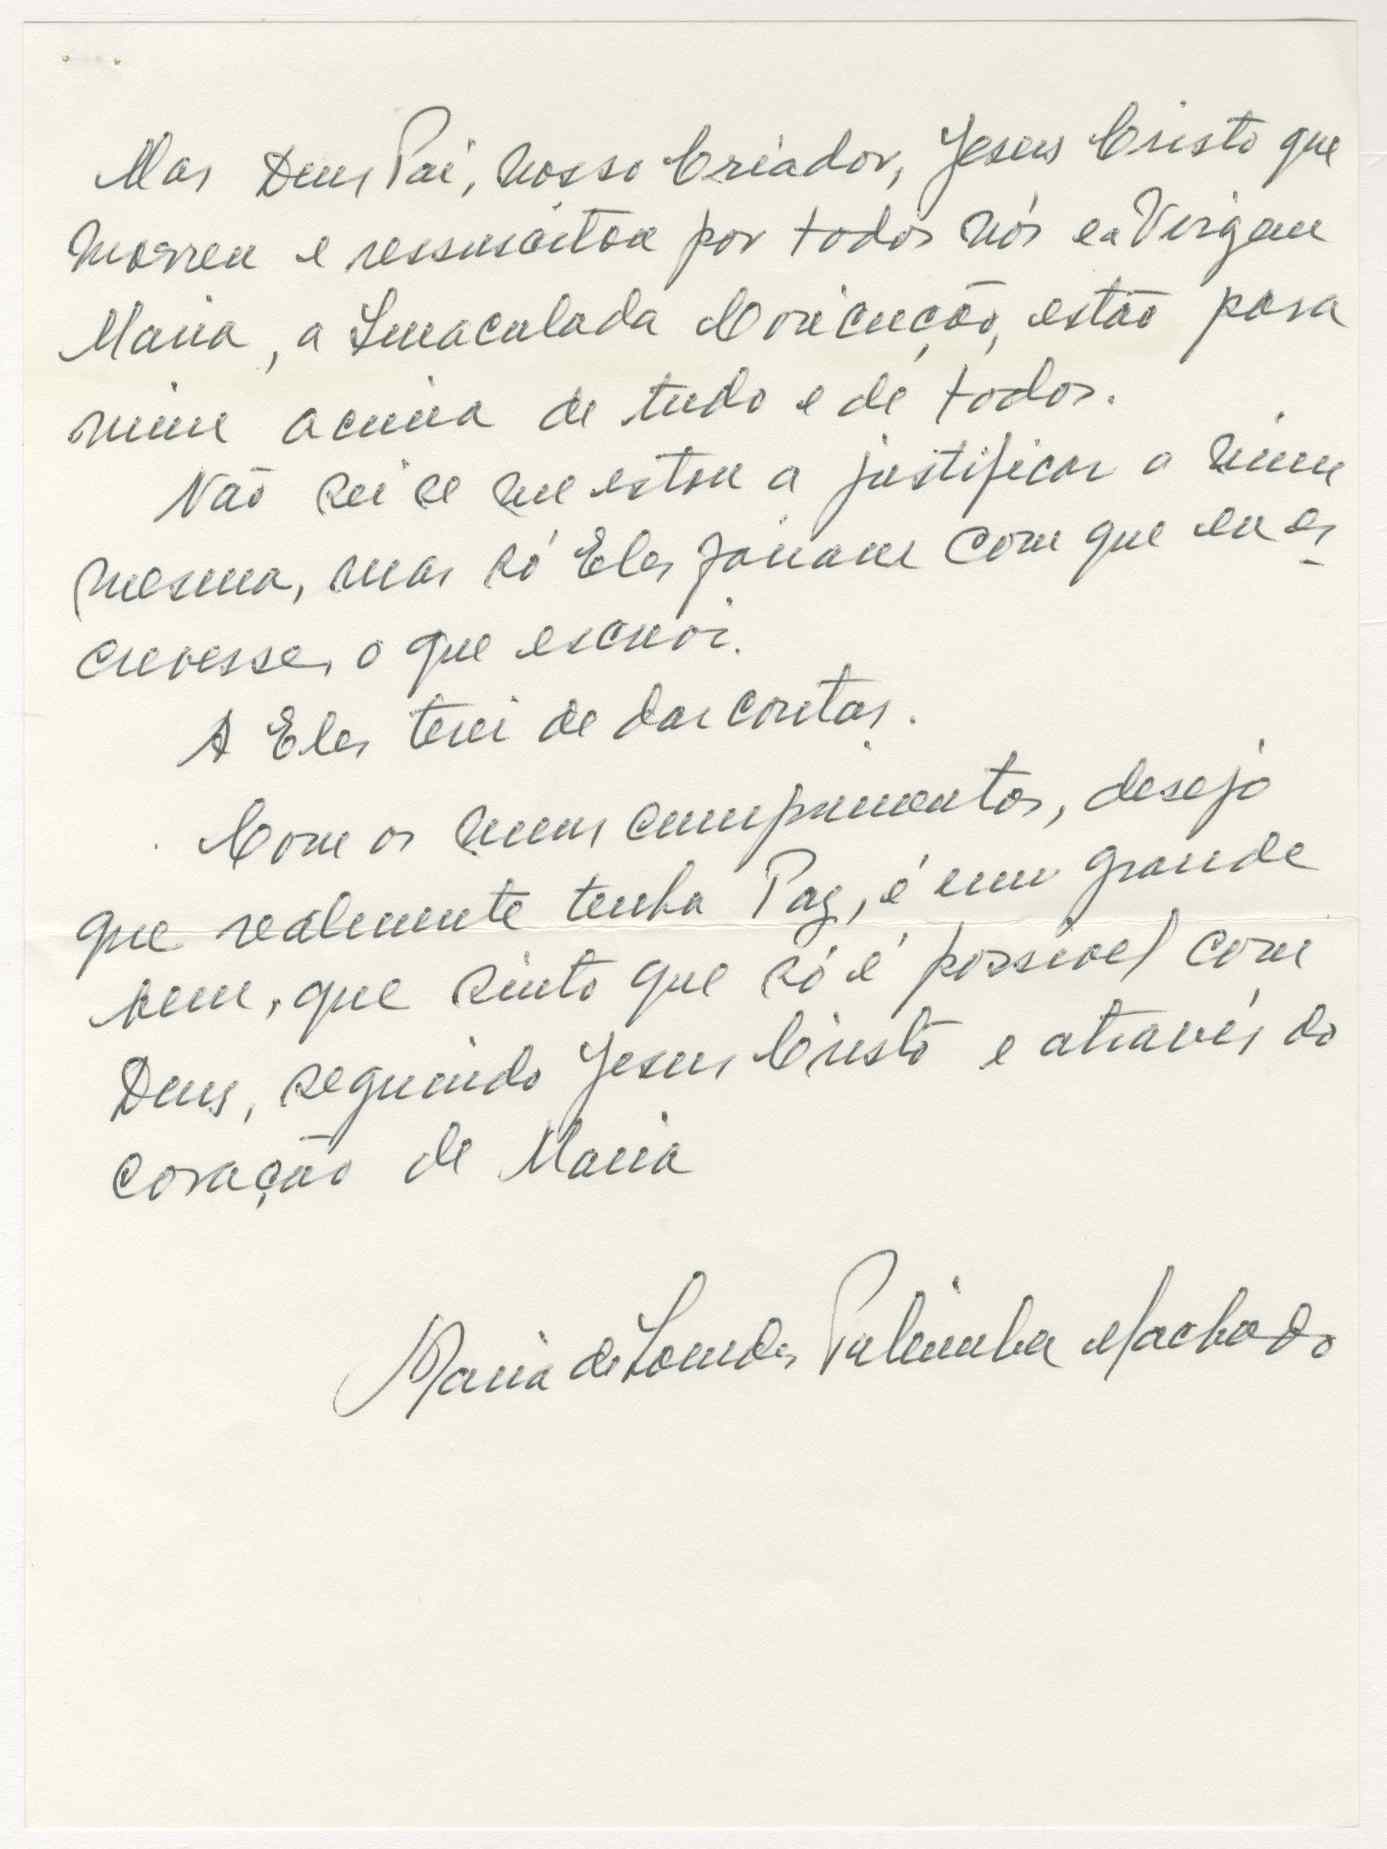 Mas Deus Pai, nosso Criador, Jesus Cristo que
morreu e ressuscitou por todos nós e a Virgem
Maria, a Imaculada Conceição, estão para
mim acima de tudo e de todos.
Não sei se me estou a justificar a mim
mesma, mas só Eles fariam com que eu es-
crevesse, o que escrevi.
A Eles terei de dar contas.
Com os meus cumprimentos, desejo
que realmente tenha Paz, é um grande
bem, que sinto que só é possível com
Deus, seguindo Jesus Cristo e através do
coração de Maria
Maria de Lourdes Machado